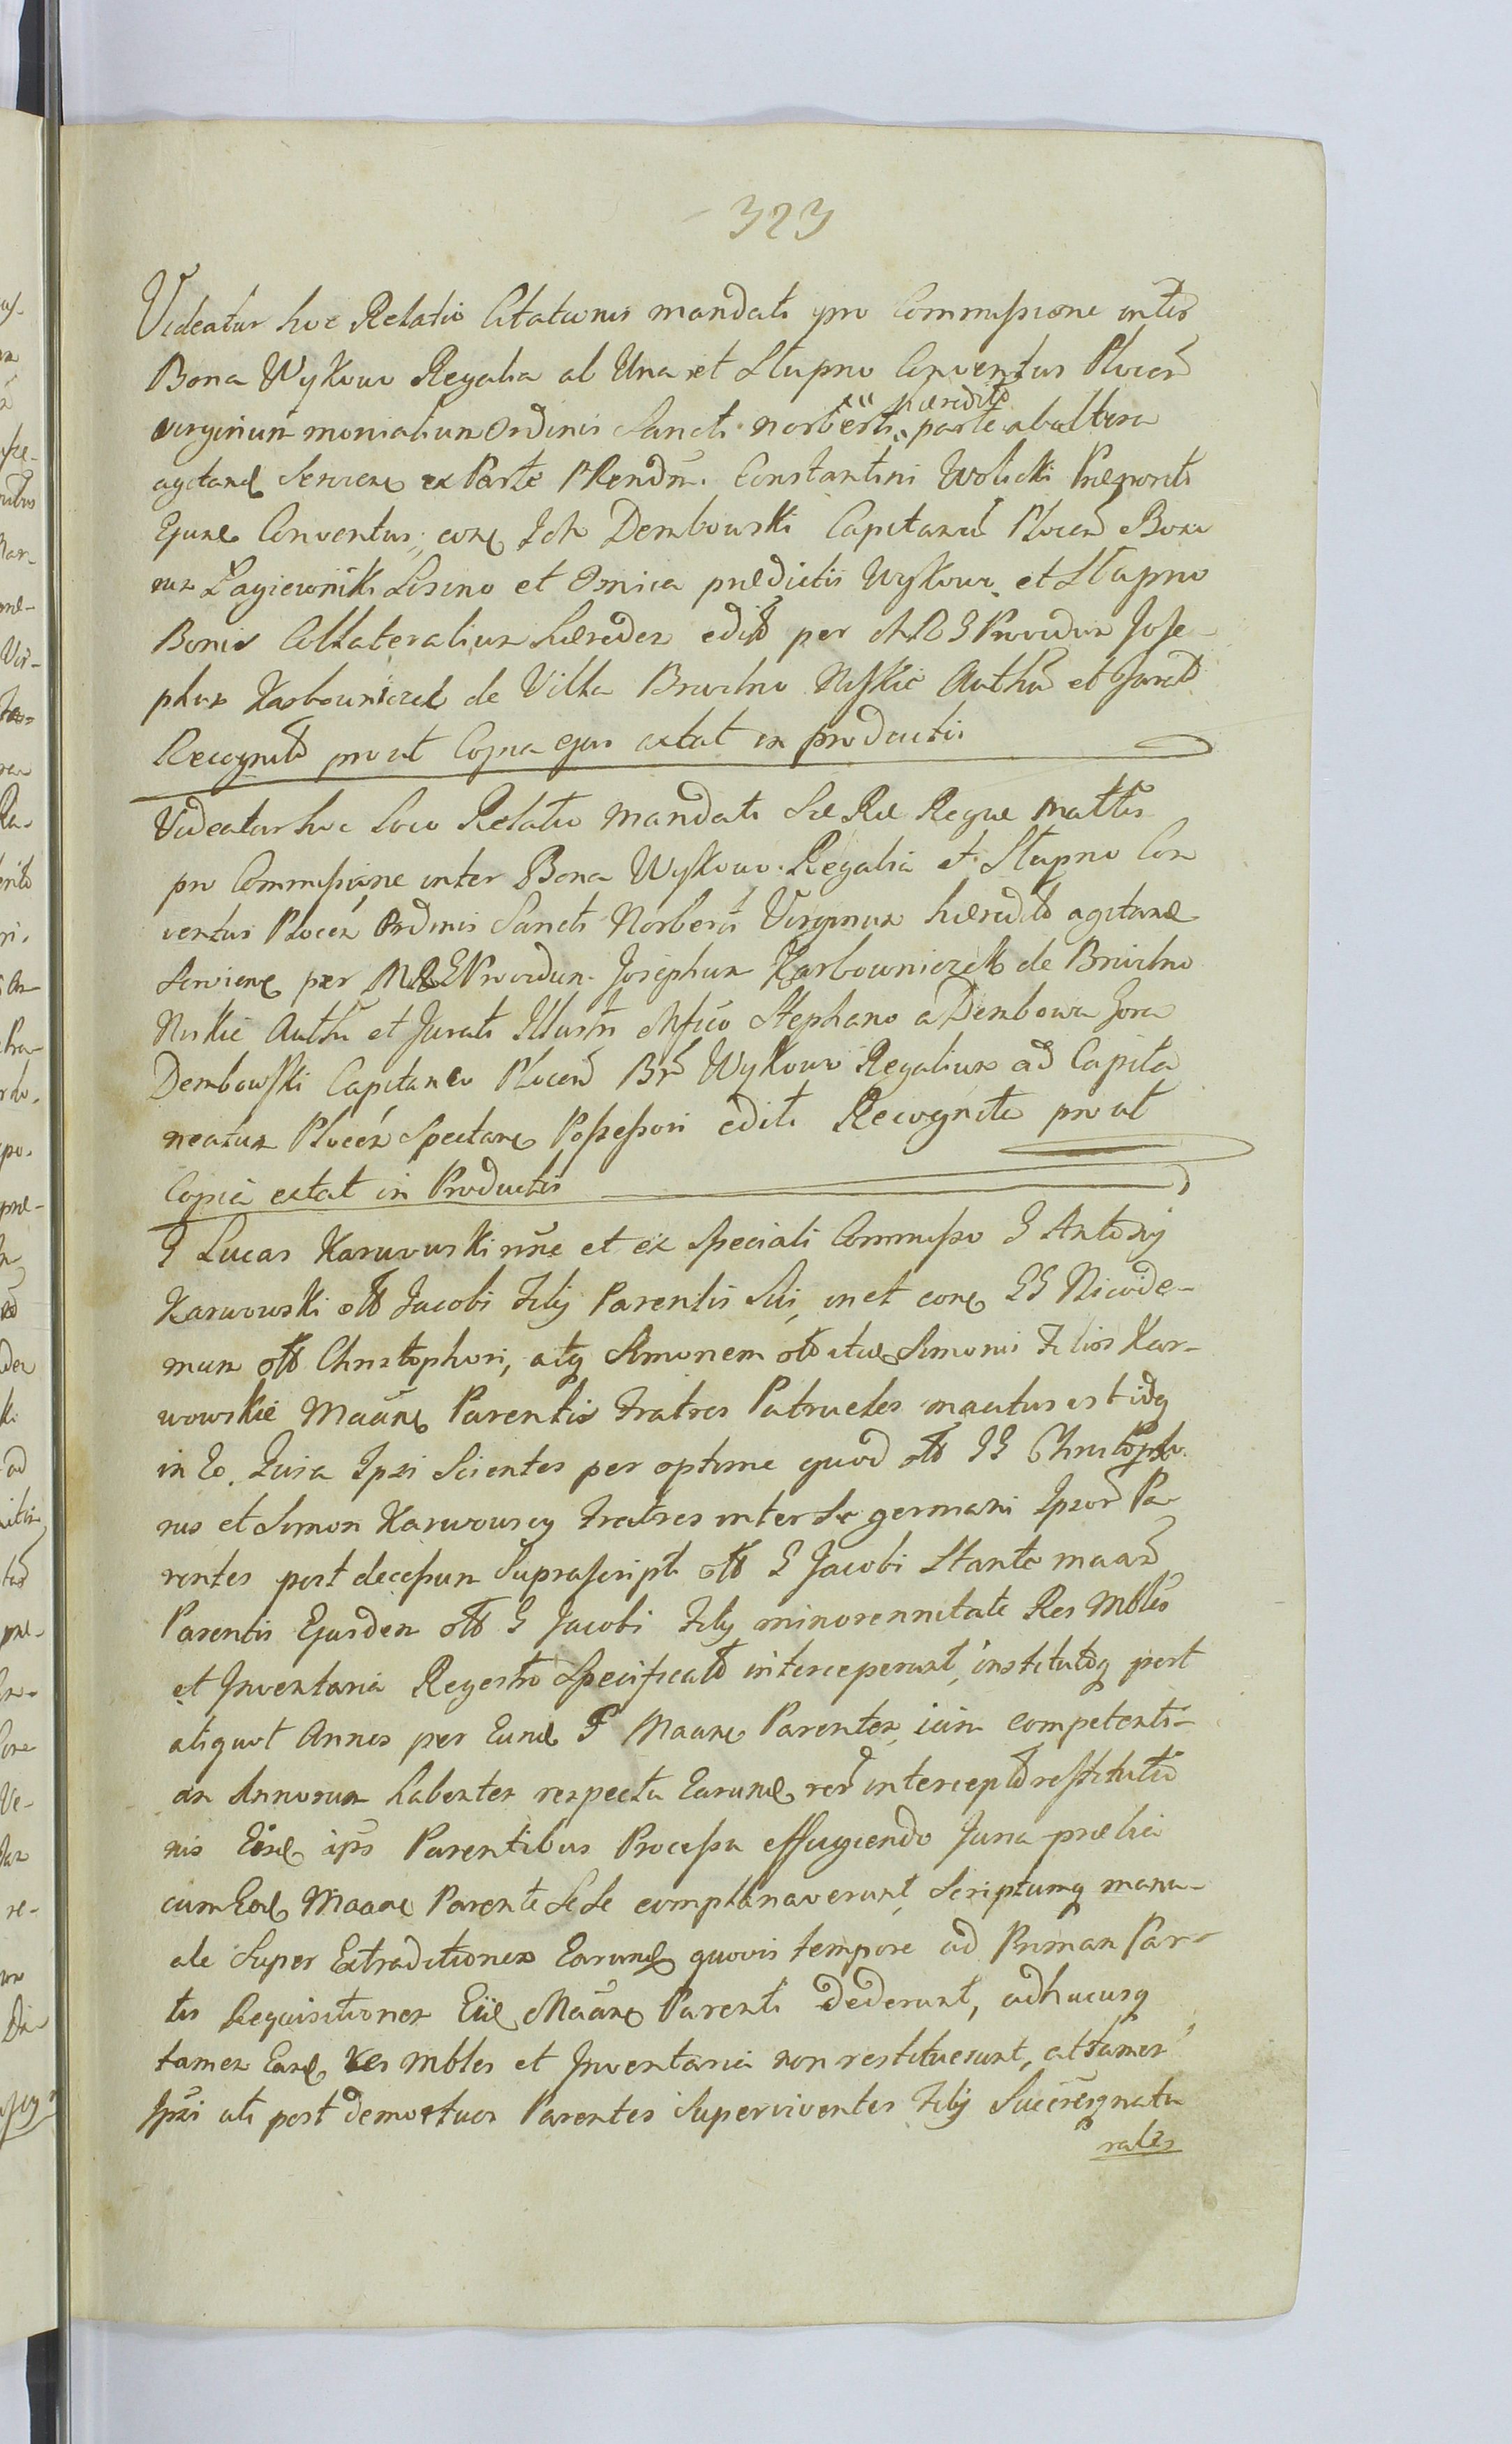 323
Videatur hoc Relatio Citationis mandati pro Commissione inter
Bona Wykowo Regalia ab Una et Słupno Conventus Plocen
virginum monialium Ordinis Sancti Norberti hæredit parte ab altera
agitand Servien ex Parte PRendm. Constantini Wolicki Præpositi
Ejusd Conventus, con Ich Dembowski Capitaneu Plocen Bono
rum Łagiewniki Lisino et Osnica prædictis Wykowo et Słupno
Bonis Collateralium hæredem edit per MRG Providum Jose
phum Karbowniczek de Villa Brwilno Niskie Authu et Jurat
Recognit prout Copia ejus extat in productis
Videatur hoc loco Relatio Mandati Sæ Ræ Regiæ Mattis
pro Commissione inter Bona Wykowo Regalia et Słupno Con
ventus Plocen Ordinis Sancti Norberti Virginum hæredit agitand
Servien per MRG Providum Josephum Karbowniczek de Brwilno
Niskie Authu et Jurati Illustri Mfico Stephano a Dembowa Gora
Dembowski Capitaneo Plocen Br Wykowo Regalium ad Capita
neatum Plocen Spectan Possessori editi Recogniti prout
Copia extat in Productis
G Lucas Karwowski nne et ex Speciali Commisso G Antonij
Karwowski olt Jacobi Filij Parentis Sui, in et con GG Nicode-
mum olt Christophori, atq Simonem olt itid Simonis Filios Kar-
wowskie Maan Parentis Fratres Patrueles mactus est idq
in Eo. Quia Ipsi Scientes per optime quod olt GG Christopho
rus et Simon Karwowscy Fratres inter Se germani Ipsor Pa
rentes post decessum Suprascript olt G Jacobi Stante maan
Parentis Ejusdem olt G Jacobi Filij minorennitate Res Mbles
et Inventaria Regestro Specificat interceperunt, institutoq post
aliquot Annos per Eund G Maan Parentem, iam competenti-
am Annorum habentem respectu Earund rer intercept restitutio
nis Eisd ips Parentibus Processu effugiendo Jura prælia
cum Eod Maan Parente Sese complanaverunt, Scriptumq manu-
ale Super Extraditionem Earund quovis tempore ad Primam Par-
tis Requisitionem Eid Maan Parenti dederunt, adhucusq
tamen Easd Res mbles et Inventaria non restituerunt, attamen
Ipsi uti post demortuos Parentes Superviventes Filij Succresq natu
rales